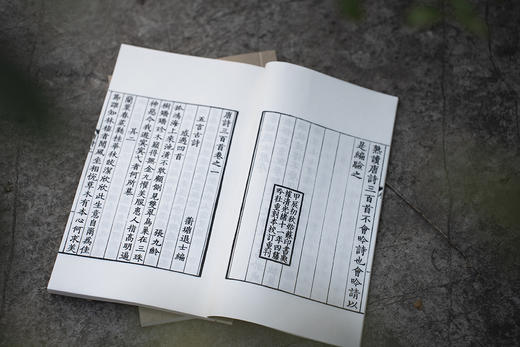 熟讀唐詩三百首不會吟詩也會吟請以
是編驗之
甲辰秋蘇印書
據清光緒十一年四藤
吟社重刻本校訂重刊
唐詩三百首卷之一
蘅塘退士編
五言古詩
感遇四首
張九齡
孤鴻海上來池潢不敢顧側見雙翠鳥巢在三珠
樹矯矯珍木巔得無金丸懼美服患人指高明逼
神惡今我遊冥冥弋者何所慕
其二
蘭葉春葳蕤桂華秋皎潔欣欣此生意自爾為佳
節誰知林棲者聞風坐相悅草木有本心何求美